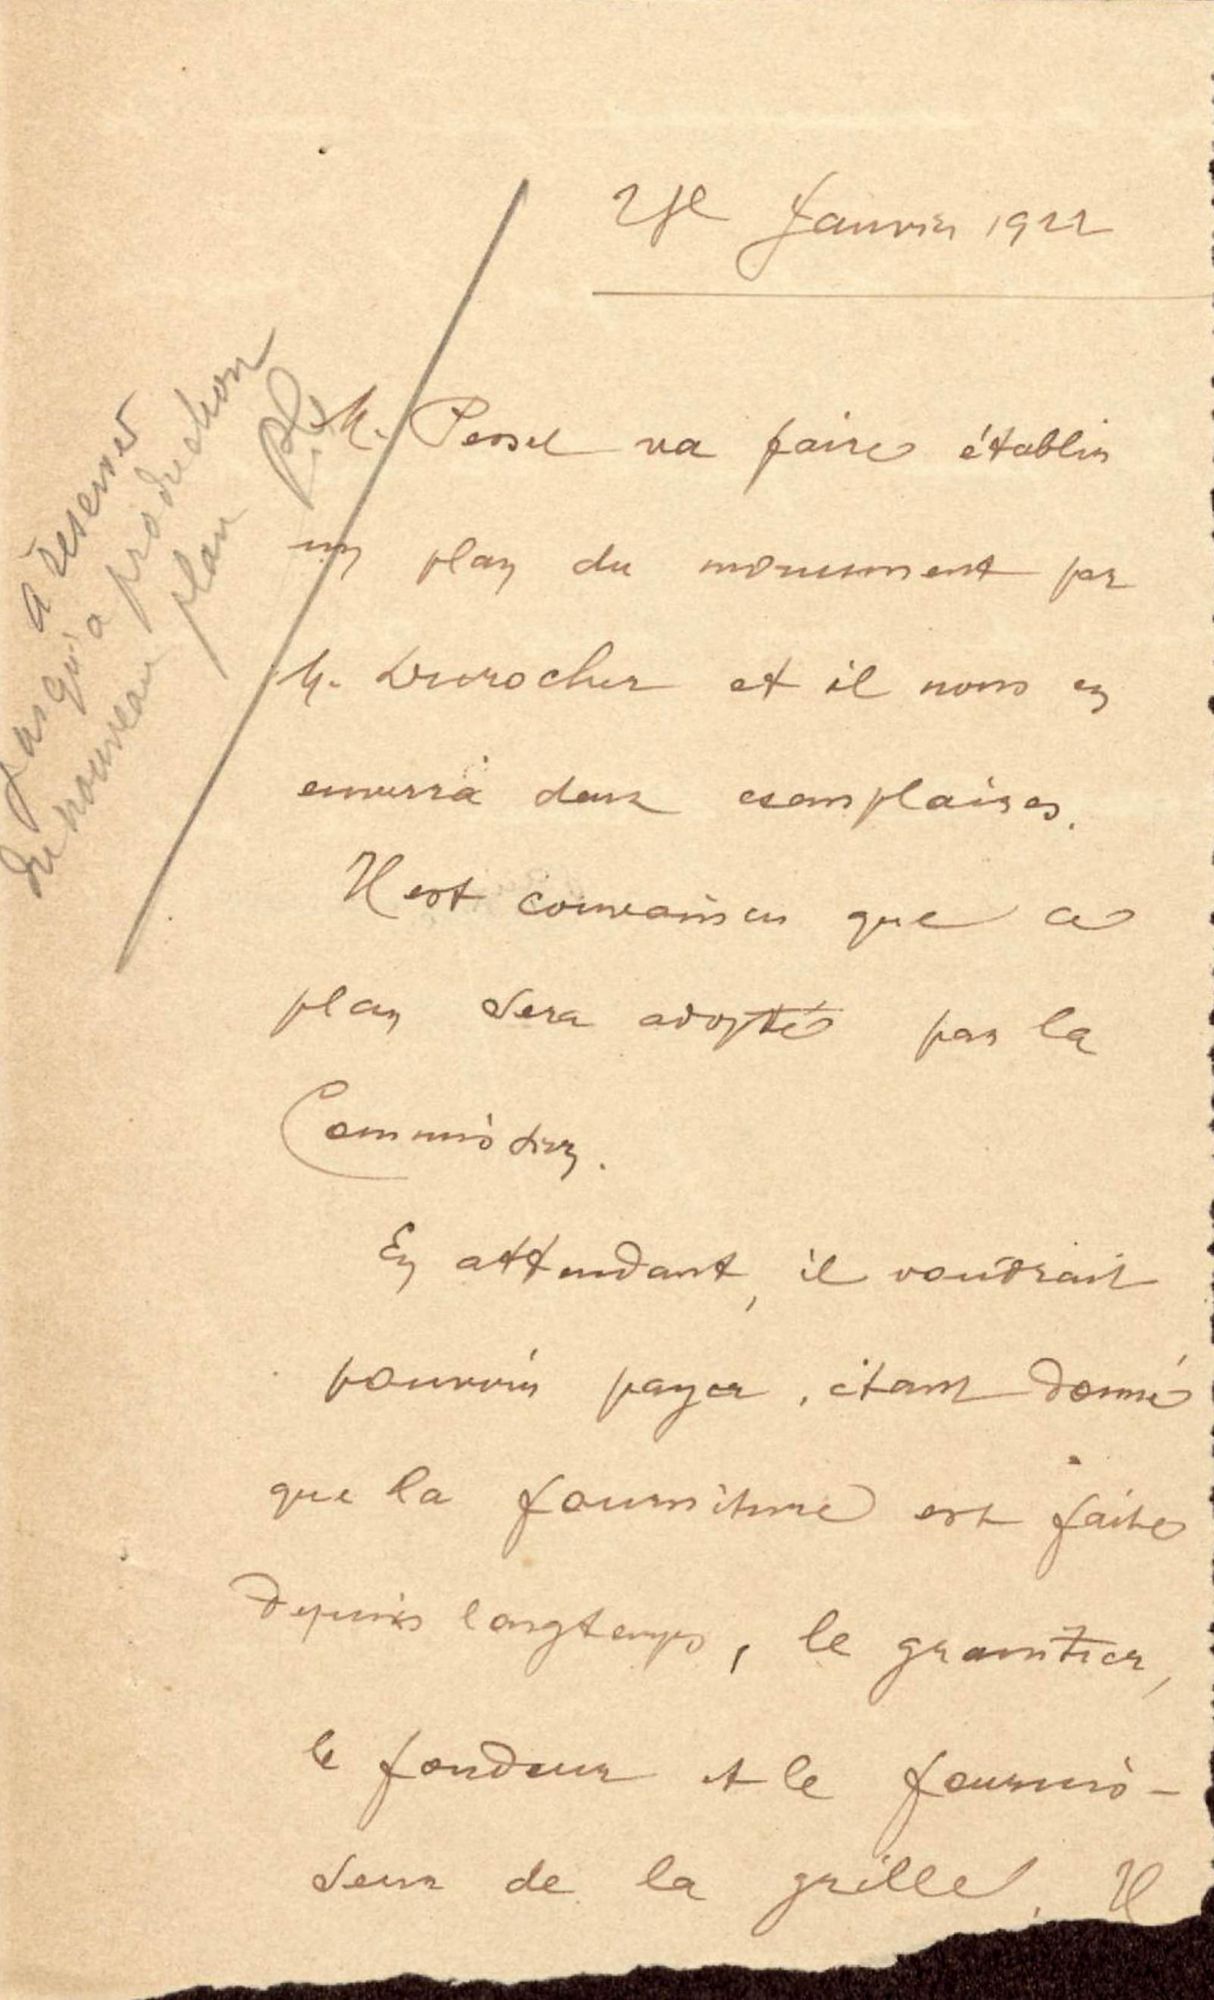 Janvier 1922
à réserver
jusqu'à production
du nouveau plan
M. va faire établir
un plan du monument par
M. Durocher et il nous en
enverra deux exemplaires.
Il est convaincu que ce
plan sera adopté par la
Commission.
En attendant, il voudrait
pouvoir payer, étant donné
que la fourniture est faite
depuis longtemps, le granitier,
le fondeur et le fournis-
seur de la grille. Il